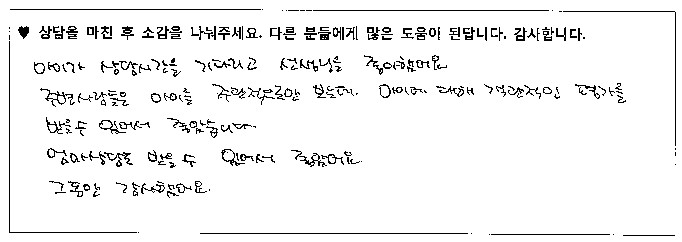 ♥ 상담을 마친 후 소감을 나눠주세요. 다른 분들에게 많은 도움이 된답니다. 감사합니다.
아이가 상담시간을 기다리고 선생님을 좋아했어요
주변사람들은 아이를 주관적으로만 보는데. 아이에 대해 객관적인 평가를
받을수 있어서 좋았습니다.
엄마상담도 받을 수 있어서 좋았어요
그동안 감사했어요